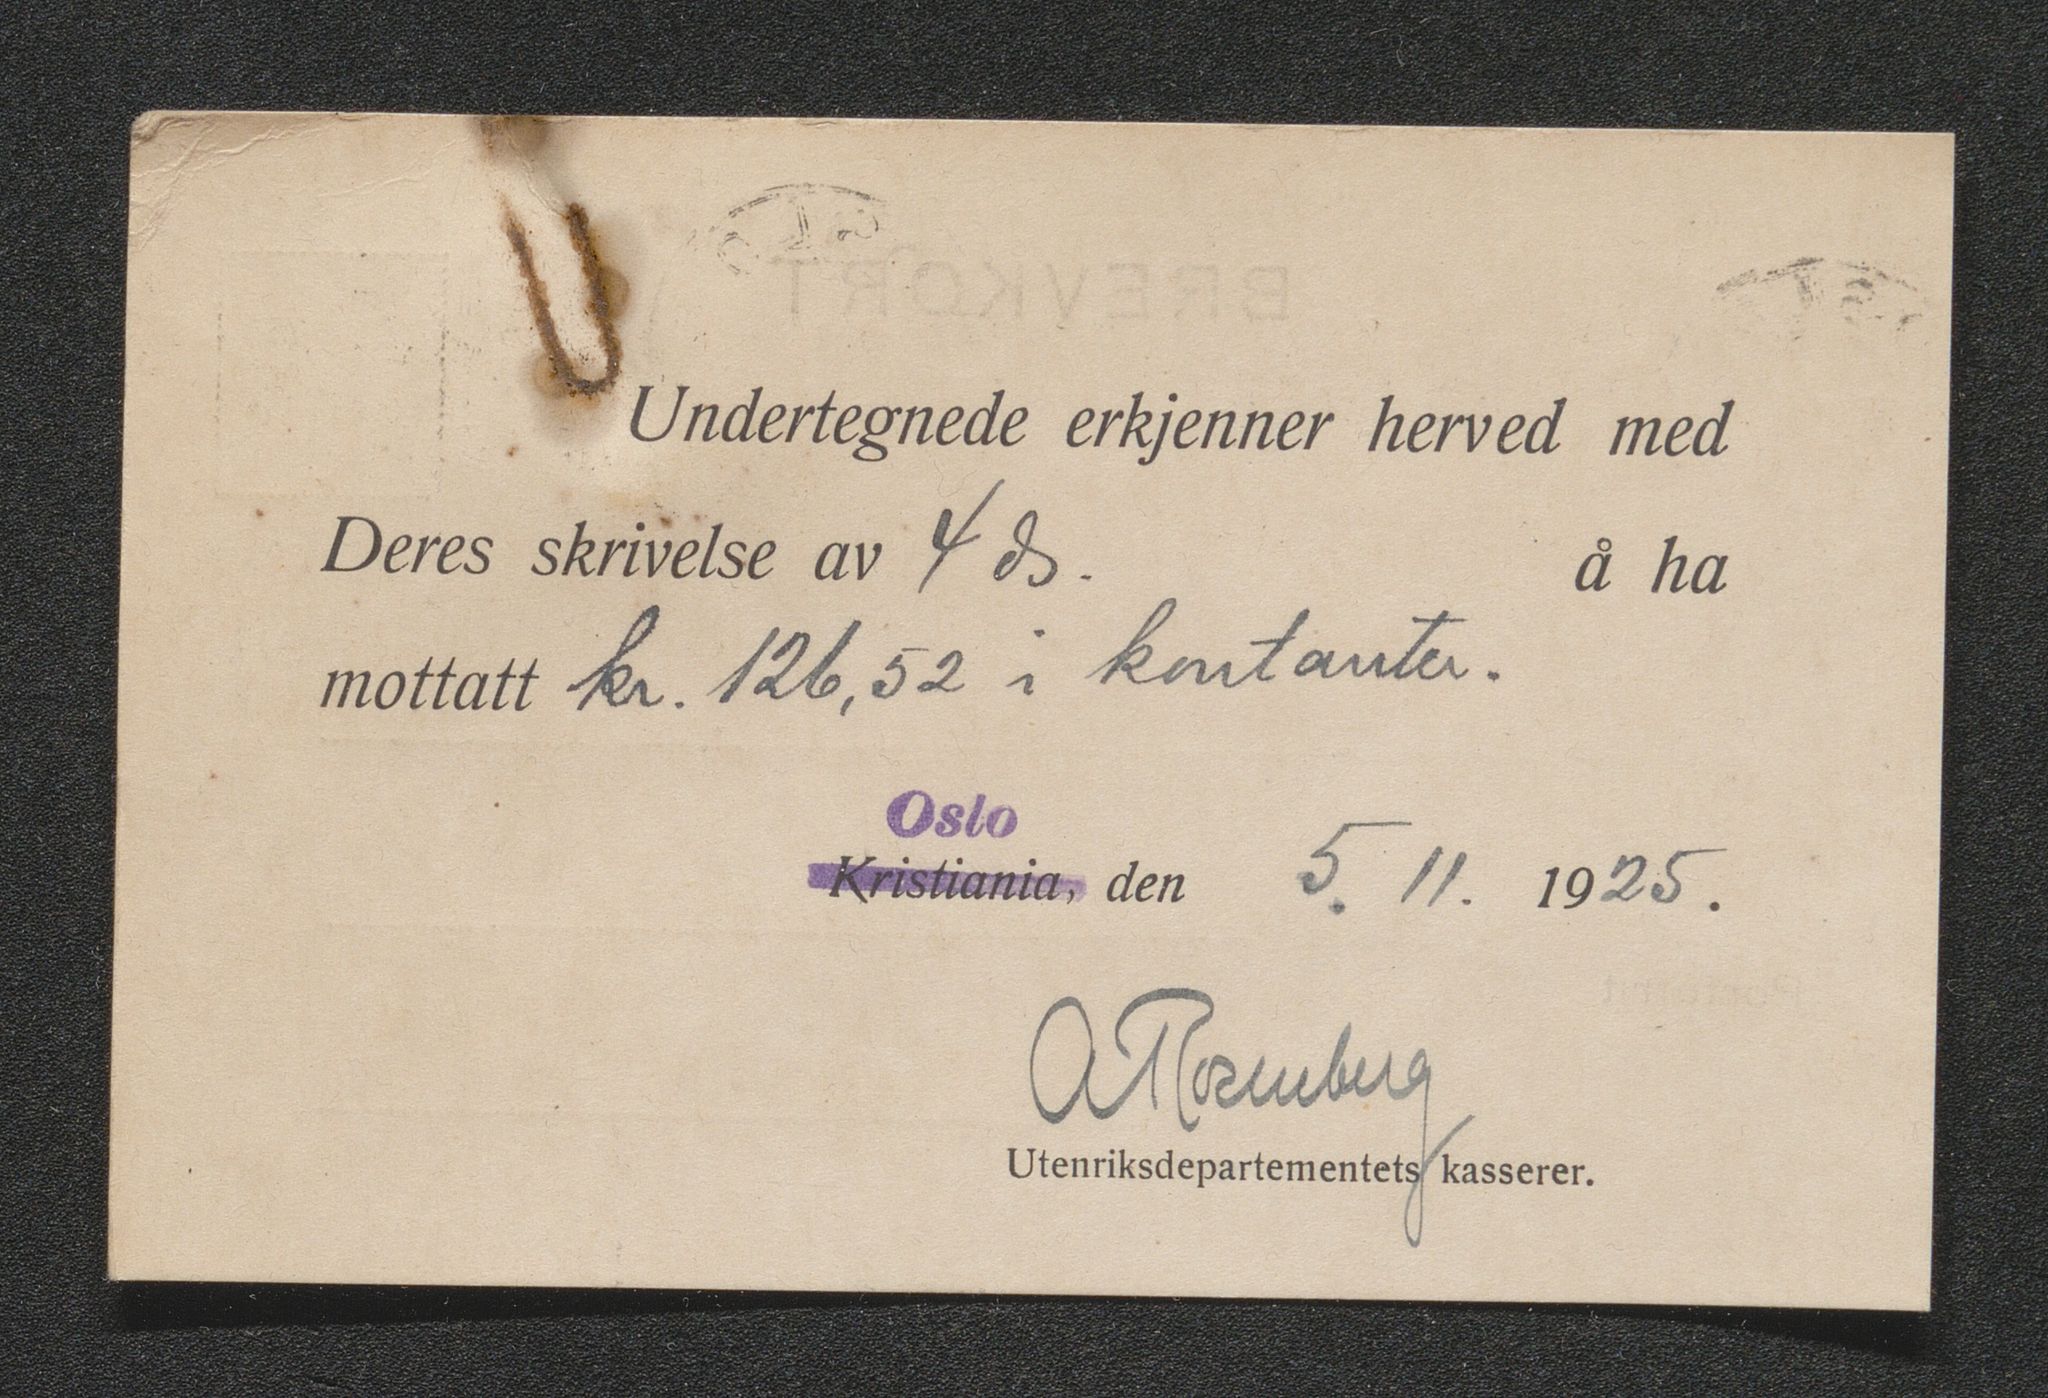 BREVKORT
Undertegnede erkjenner herved med
Deres skrivelse av 4 ds. å ha
mottatt kr. 126,52 i kontanter.
Oslo
Kristiania, den 5. 11. 1925.
A Rosenberg
Utenriksdepartementets kasserer.